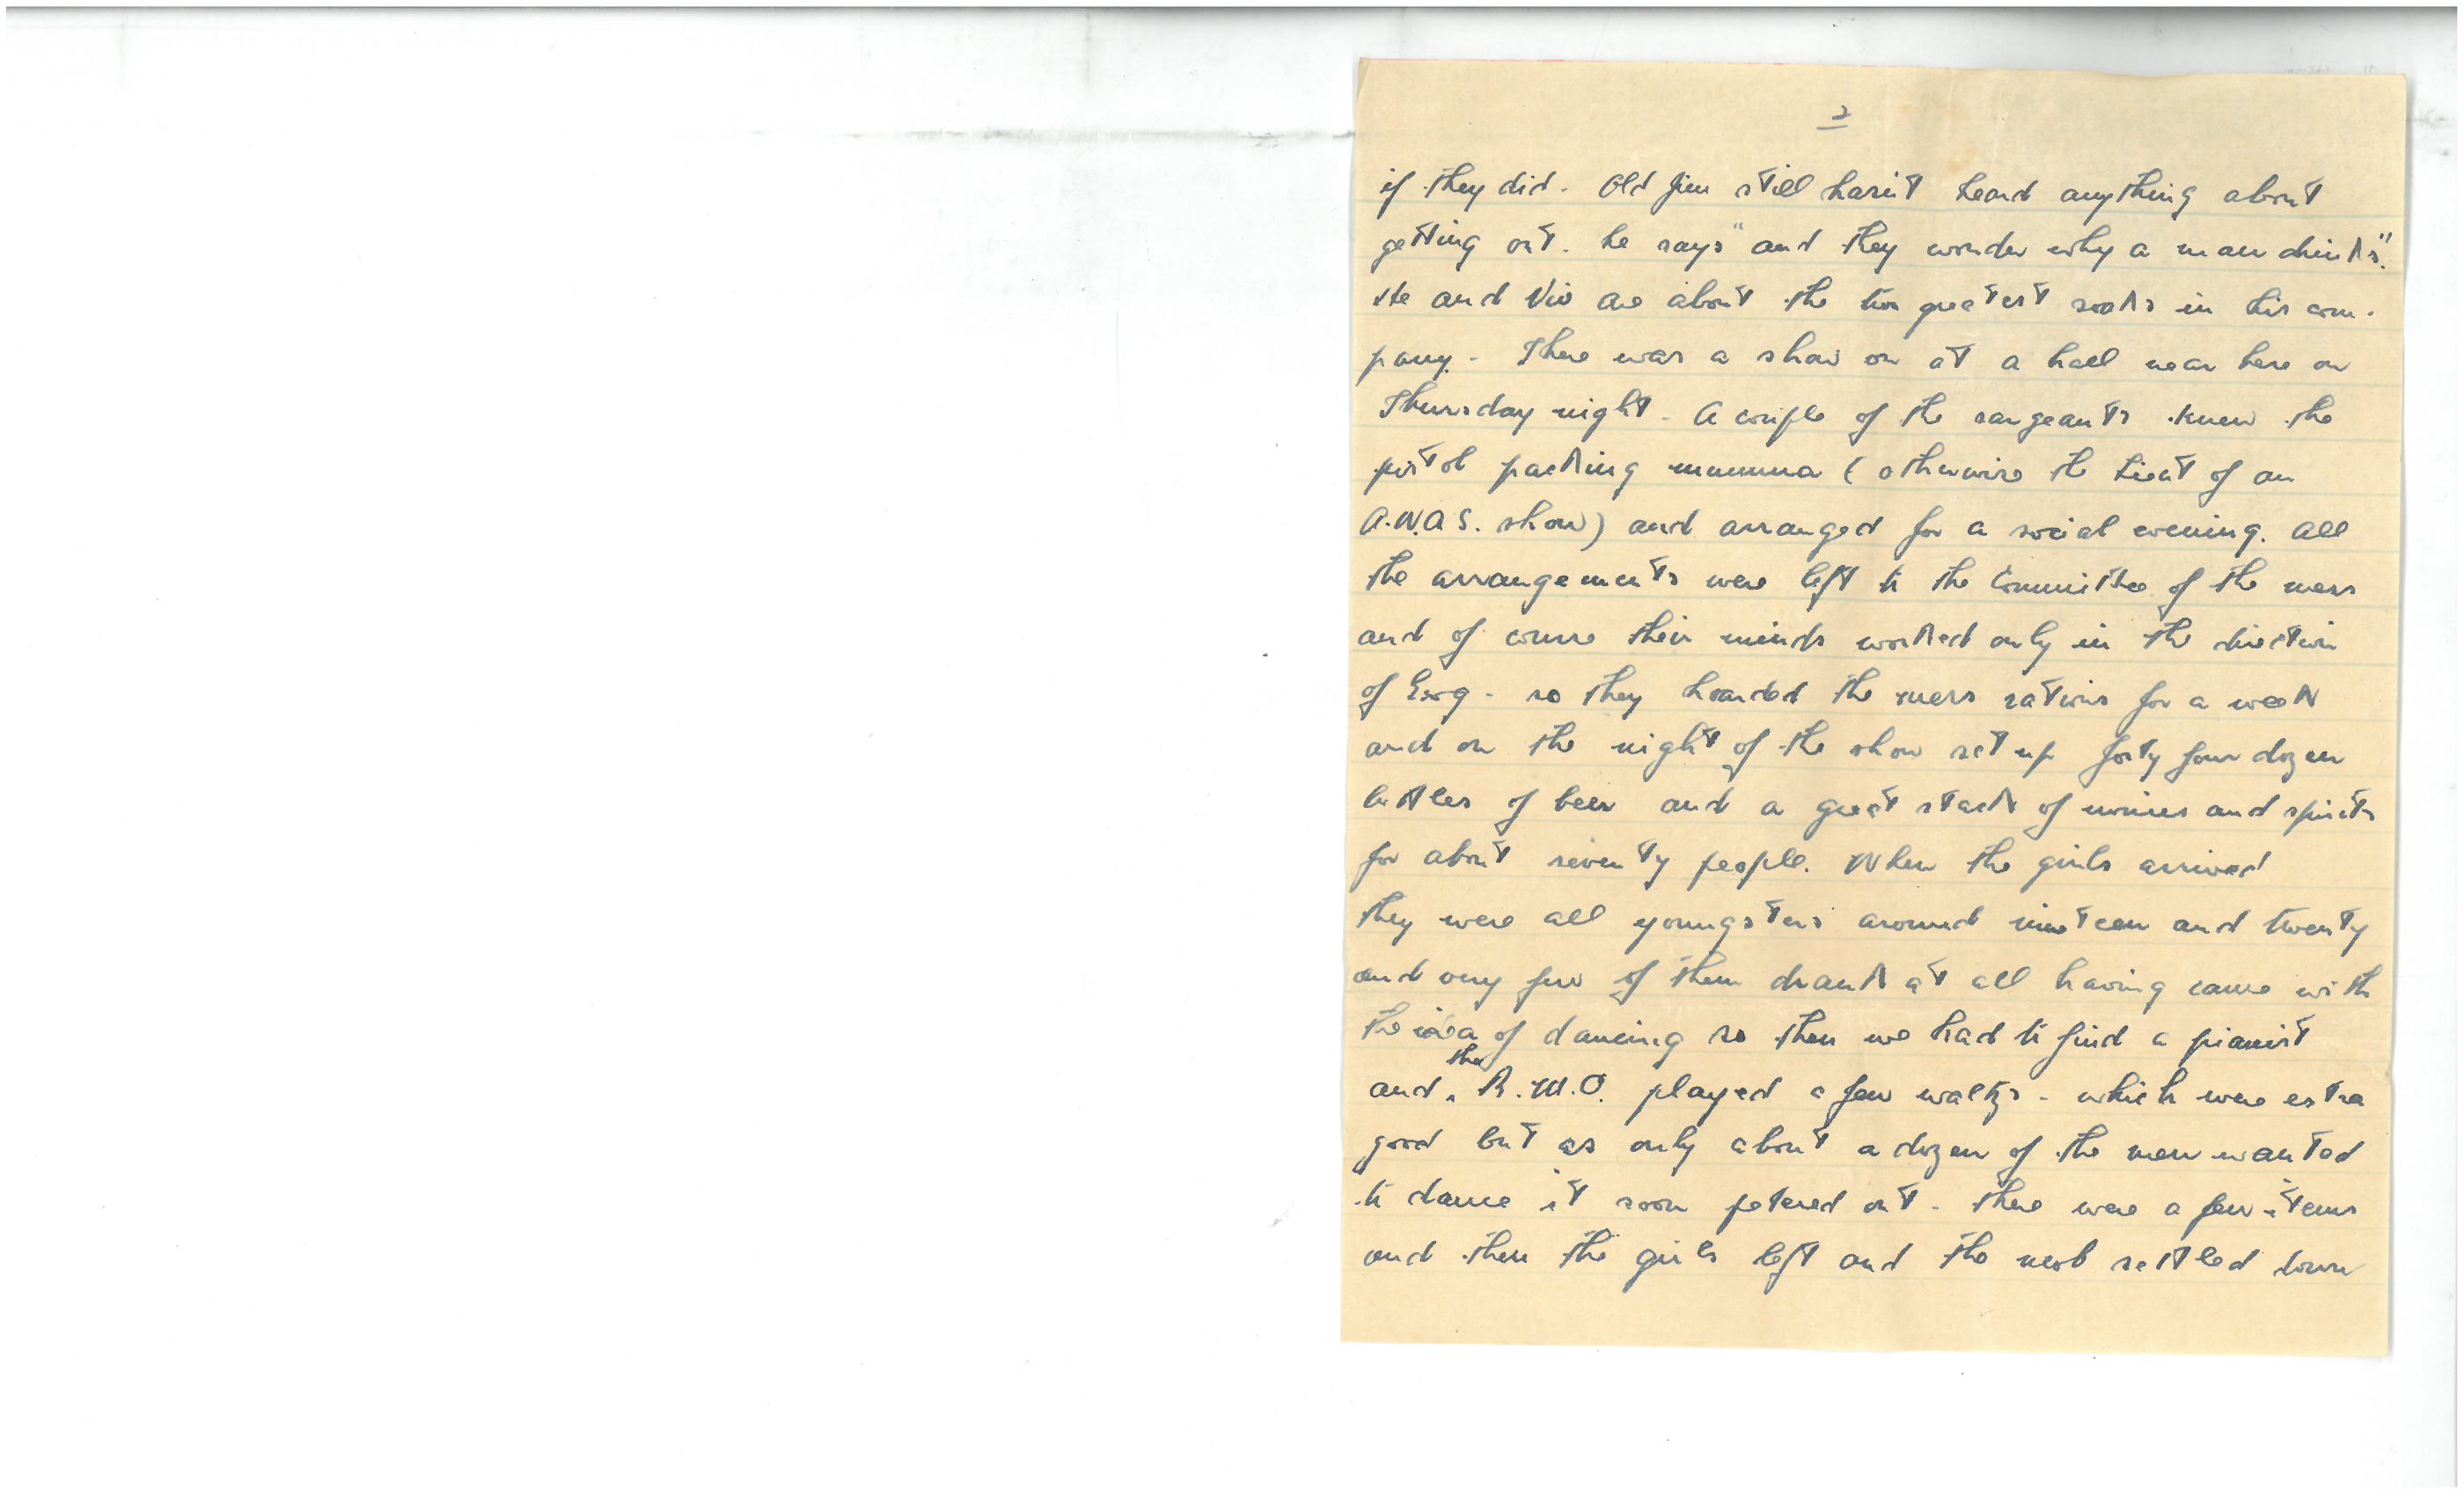 2
if they did. Old Jim still hasn't heard anything about
getting out. he says "and they wonder why a man drinks".
He and Viv are about the two greatest soaks in his com-
pany. There was a show on at a hall near here on
Thursday night. A couple of the sargeants knew the
pistol packing mumma (otherwise the Lieut of an
A.W.A.S. show) and arranged for a social evening. All
the arrangements were left to the Committee of the mess
and of course their minds worked only in the direction
of Grog - so they hoarded the mess rations for a week
and on the night of the show set up forty four dozen
bottles of beer and a great stack of wines and spirits
for about seventy people. When the girls arrived
they were all youngsters around nineteen and twenty
and very few of them drank at all having came with
the idea of dancing so then we had to find a pianist
and the R.M.O. played a few waltzs - which were extra
good but as only about a dozen of the men wanted
to dance it soon petered out - there were a few items
and then the girls left and the mob settled down